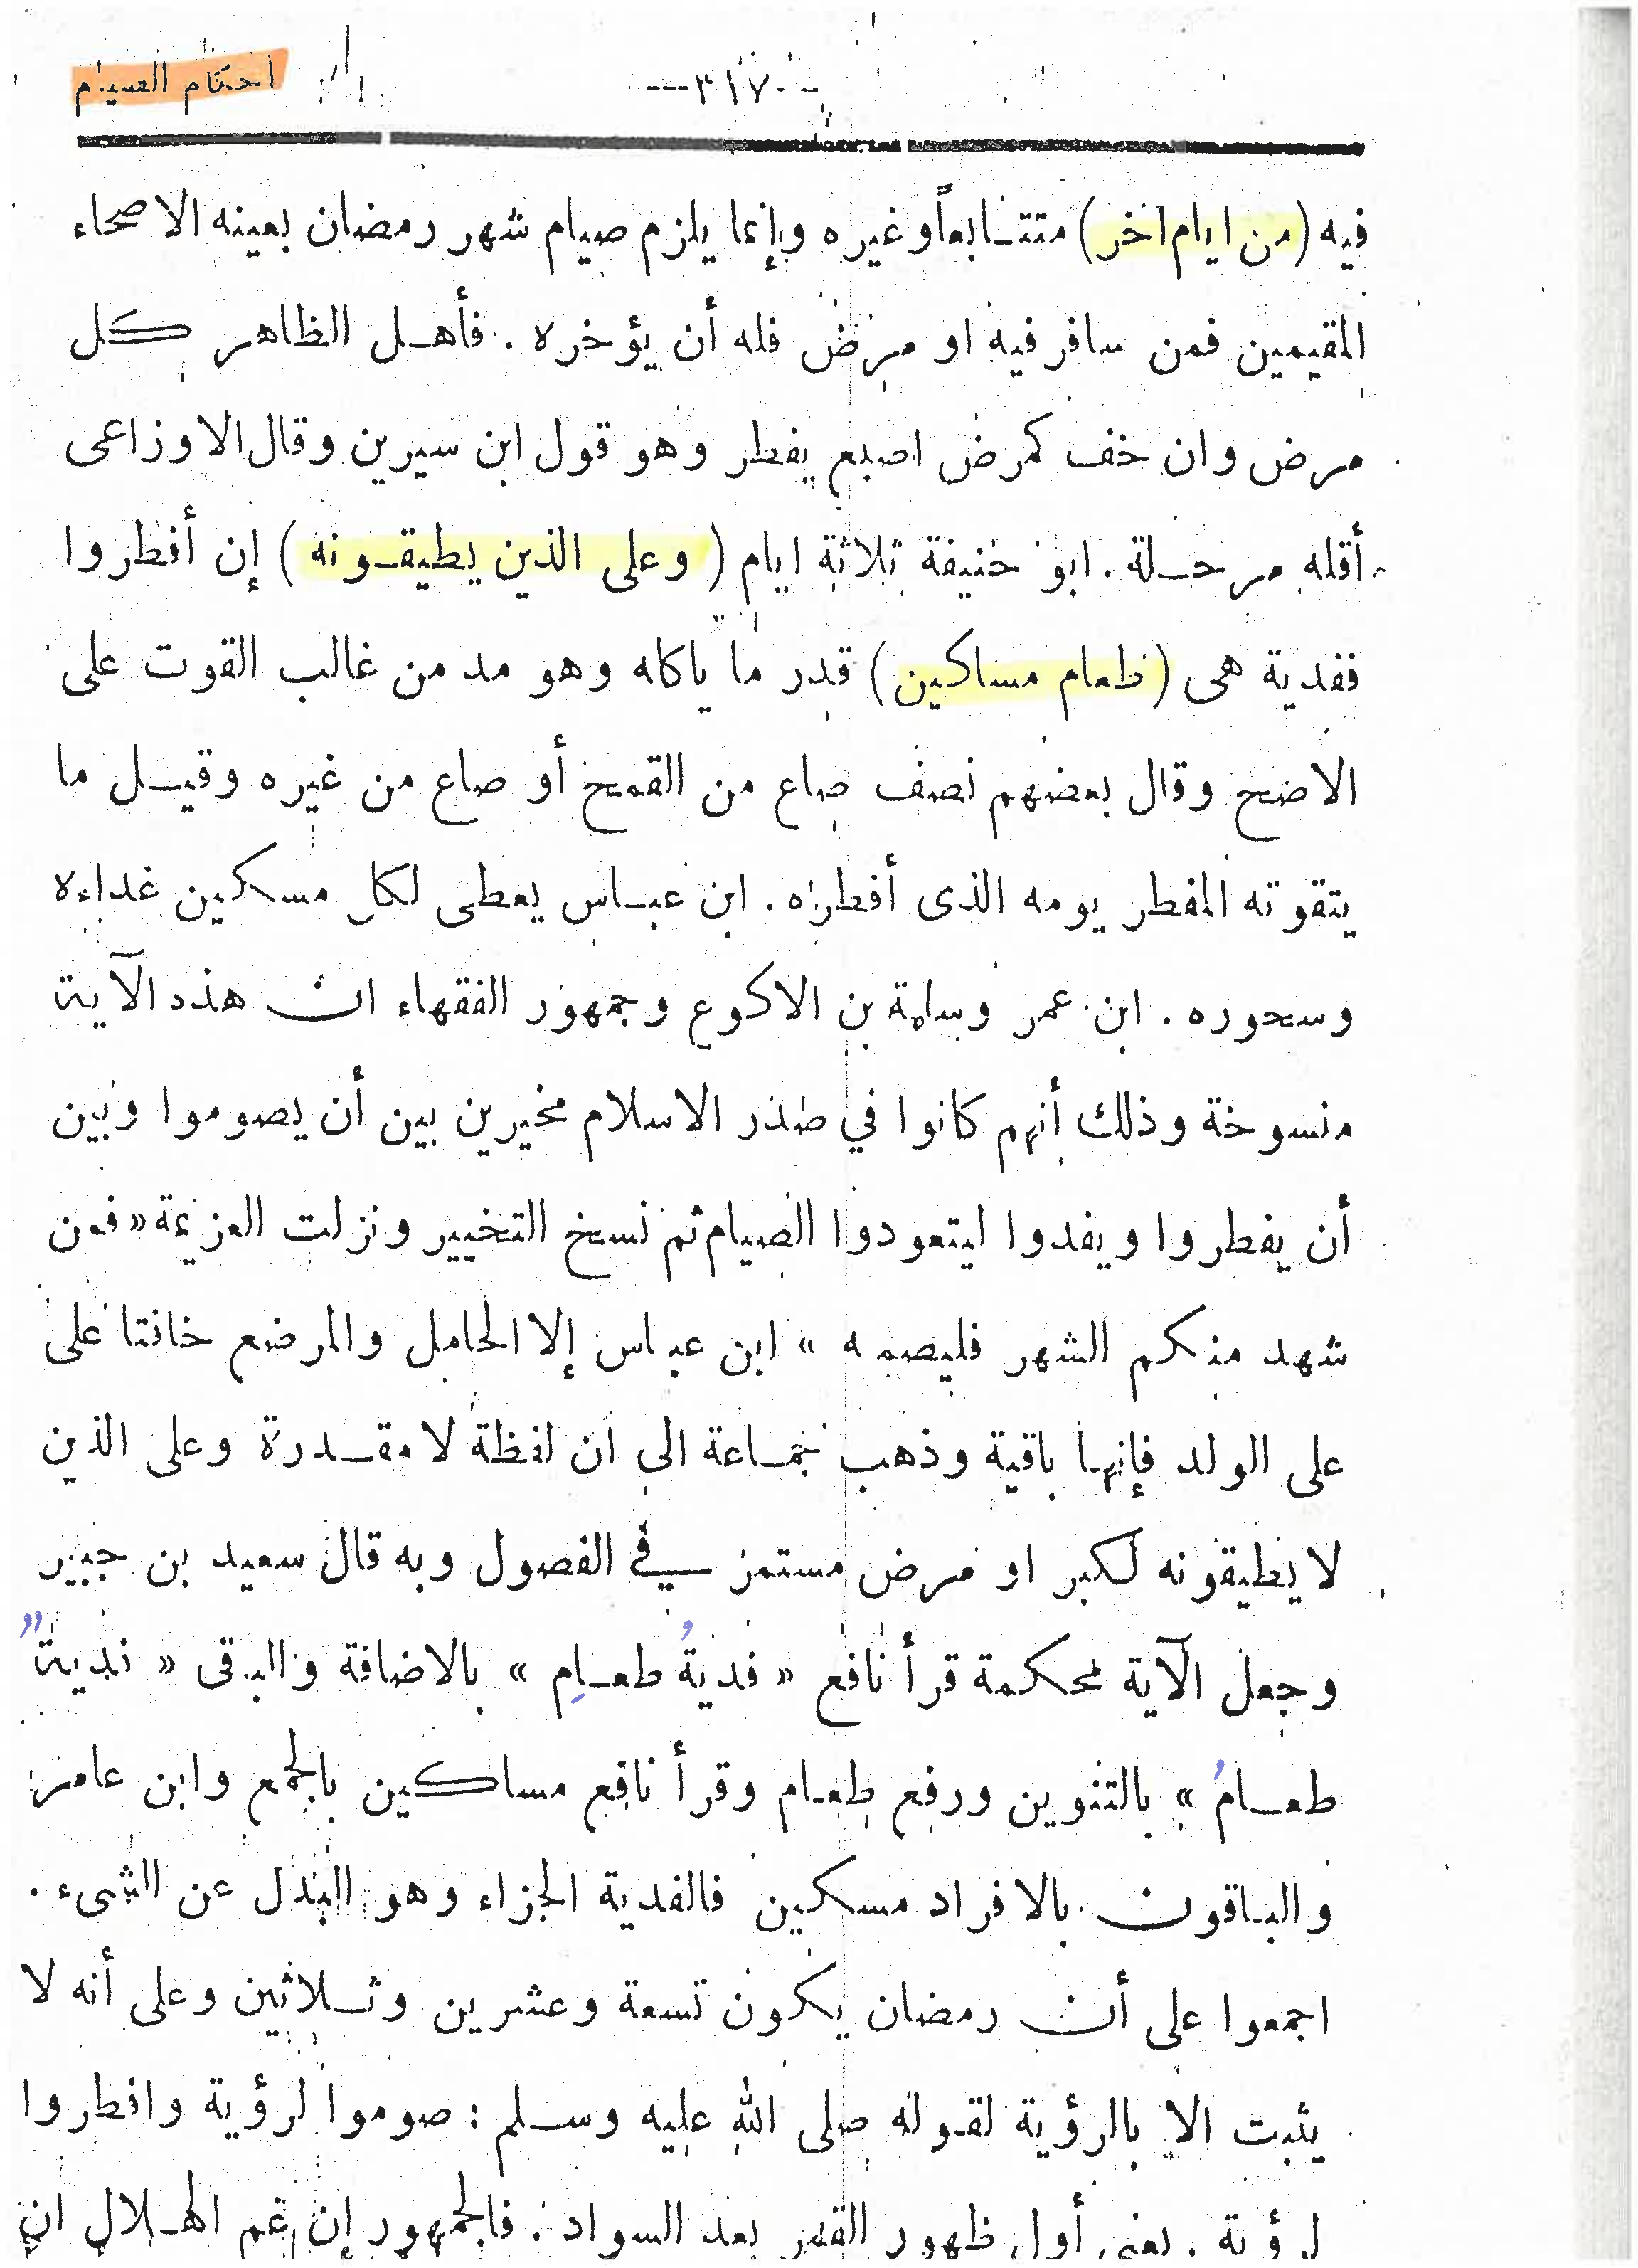 احكام الصيام
--٣١٧--
فيه (من ايام اخر) متتابعاً وغيره وإنما يلزم صيام شهر رمضان بعينه الاصحاء
المقيمين فمن سافر فيه او مرض فله أن يؤخره . فأهل الظاهر كل
مرض وان خف كمرض اصبع يفطر وهو قول ابن سيرين وقال الاوزاعى
أقله مرحلة . ابو حنيفة ثلاثة ايام (وعلى الذين يطيقونه) إن أفطروا
ففدية هى (طعام مساكين) قدر ما ياكله وهو مد من غالب القوت على
الاصح وقال بعضهم نصف صاع من القمح أو صاع من غيره وقيل ما
يتقوته المفطر يومه الذى أفطره . ابن عباس يعطى لكل مسكين غداءه
وسحوره . ابن عمر وسلمة بن الاكوع وجمهور الفقهاء ان هذه الآية
منسوخة وذلك أنهم كانوا في صدر الاسلام مخيرين بين أن يصوموا وبين
أن يفطروا ويفدوا ليتعودوا الصيام ثم نسخ التخيير ونزلت العزيمة «فمن
شهد منكم الشهر فليصمه» ابن عباس إلا الحامل والمرضع خافتا على
على الولد فإنها باقية وذهب جماعة الى ان لفظة لا مقدرة وعلى الذين
لا يطيقونه لكبر او مرض مستمر في الفصول وبه قال سعيد بن جبير
وجعل الآية محكمة قرأ نافع «فديةُ طعامِ» بالاضافة والباقى «فديةٌ
طعامُ» بالتنوين ورفع طعام وقرأ نافع مساكين بالجمع وابن عامر
والباقون بالافراد مسكين فالفدية الجزاء وهو البدل عن الشىء .
اجمعوا على أن رمضان يكون تسعة وعشرين وثلاثين وعلى أنه لا
يثبت الا بالرؤية لقوله صلى الله عليه وسلم : صوموا لرؤية وافطروا
لرؤية . يعنى أول ظهور القمر بعد السواد . فالجمهور إن غم الهلال ان